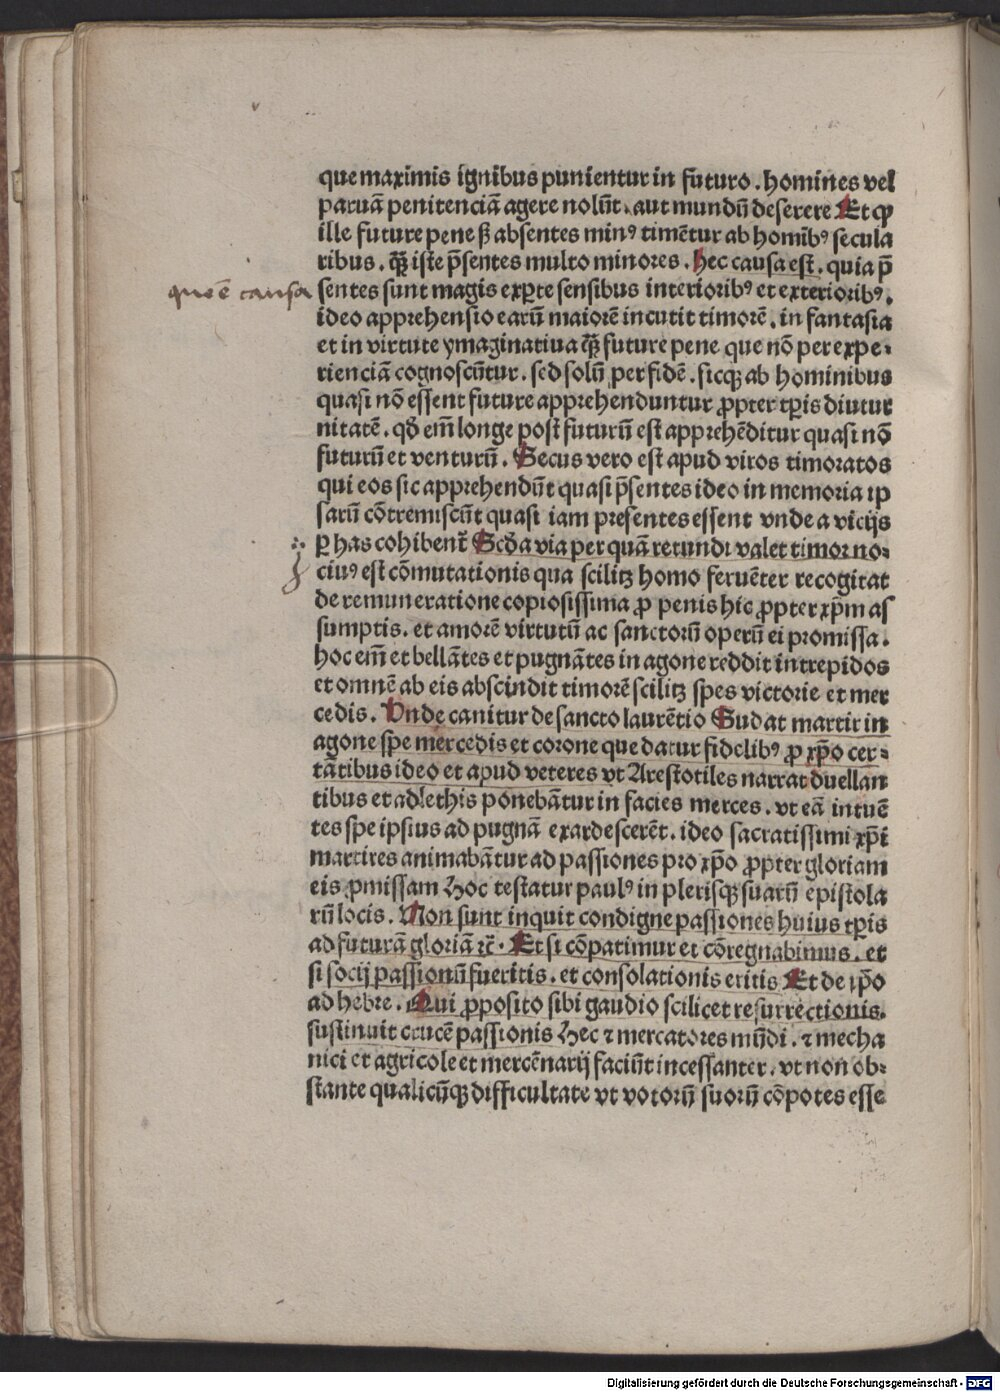 que maximis ignibus punientur in futuro . homines vel
paruã penitenciã agere nolũt . aut mundũ deserere Et qꝫ
ille future pene ꝫ absentes minꝰ timẽtur ab homĩbꝰ secula
ribus . q̃ꝫ iste p̃sentes multo minores . hec causa est . quia p̃
que ẽ causa
sentes sunt magis exꝑte sensibus interioribꝰ et exterioribꝰ .
ideo apprehensio earũ maiorẽ incutit timorẽ . in fantasia
et in virtute ymaginatiua q̃ꝫ future pene que nõ per expe-
rienciã cognoscũtur . sed solũ per fidẽ . sicqꝫ ab hominibus
quasi nõ essent future apprehenduntur ꝓpter tꝑis diutur
nitatẽ . qđ em̃ longe post futurũ est apprehẽditur quasi nõ
futurũ et venturũ . Secus vero est apud viros timoratos
qui eos sic apprehendũt quasi p̃sentes ideo in memoria ip
sarũ cõtremiscũt quasi iam presentes essent vnde a vicijs
ꝑ has cohibent̃ Scđa via per quã retundi valet timor no-
ciuꝰ est cõmutationis qua scilitꝫ homo feruẽter recogitat
de remuneratione copiosissima ꝓ penis hic ꝓpter xp̃m as
sumptis . et amorẽ virtutũ ac sanctorũ operũ ei promissa .
hoc em̃ et bellãtes et pugnãtes in agone reddit intrepidos
et omnẽ ab eis abscindit timorẽ scilitꝫ spes victorie et mer
cedis . Vnde canitur de sancto laurẽtio Sudat martir in
agone spe mercedis et corone que datur fidelibꝰ ꝓ xp̃o cer-
tãtibus ideo et apud veteres vt Arestotiles narrat duellan
tibus et adlethis ponebãtur in facies merces . vt eã intuẽ
tes spe ipsius ad pugnã exardescerẽt . ideo sacratissimi xp̃i
martires animabãtur ad passiones pro xp̃o ꝓpter gloriam
eis ꝓmissam Hoc testatur paulꝰ in plerisqꝫ suarũ epistola
rũ locis . Non sunt inquit condigne passiones huius tꝑis
ad futurã gloriã ⁊c̃ . Et si cõpatimur et cõregnabimus . et
si socij passionũ fueritis . et consolationis eritis Et de xp̃o
ad hebre . Qui ꝓposito sibi gaudio scilicet resurrectionis .
sustinuit crucẽ passionis Hec ⁊ mercatores mũdi . ⁊ mecha
nici et agricole et mercẽnarij faciũt incessanter . vt non ob-
stante qualicũqꝫ difficultate vt votorũ suorũ cõpotes esse
Digitalisierung gefördert durch die Deutsche Forschungsgemeinschaft - DFG